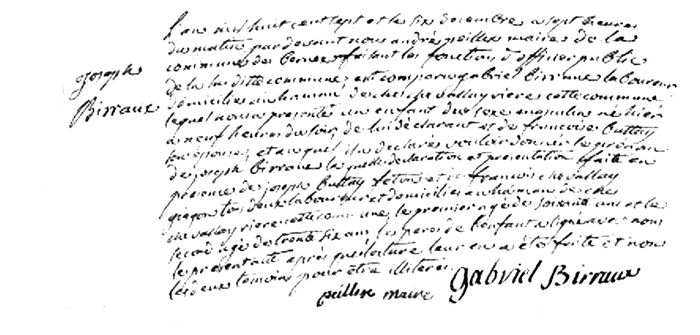 joseph
Birraux
L'an mil huit cent sept et le six decembre a sept heures
du matin par devant nous andré peillex maire de la
commune de Bernex faisant les fonctions d'officier public
de la su ditte commune est comparu gabriel Birraux laboureur
domicilié au hamau de vallay riere cette commune
lequel nous a presenté un enfant du sexe masculin né hier
a neuf heures du soir de lui déclarant et de francoise Buttay
son épouse, et auquel il a déclaré vouloir donner le prenom
de joseph Birraux la quelle declaration et presentation faite en
presence de joseph Buttay et françois chevallay
deux laboureur et domiciliés au hamau de ches
chevallay riere cette commune, le premier agé de soixante ans et le
second agé de trente six ans, le pere de l'enfant a signé avec nous
le present acte après que lecture leur en a été faite et non
les deux temoins pour être illiterés
peillex maire
gabriel Birraux